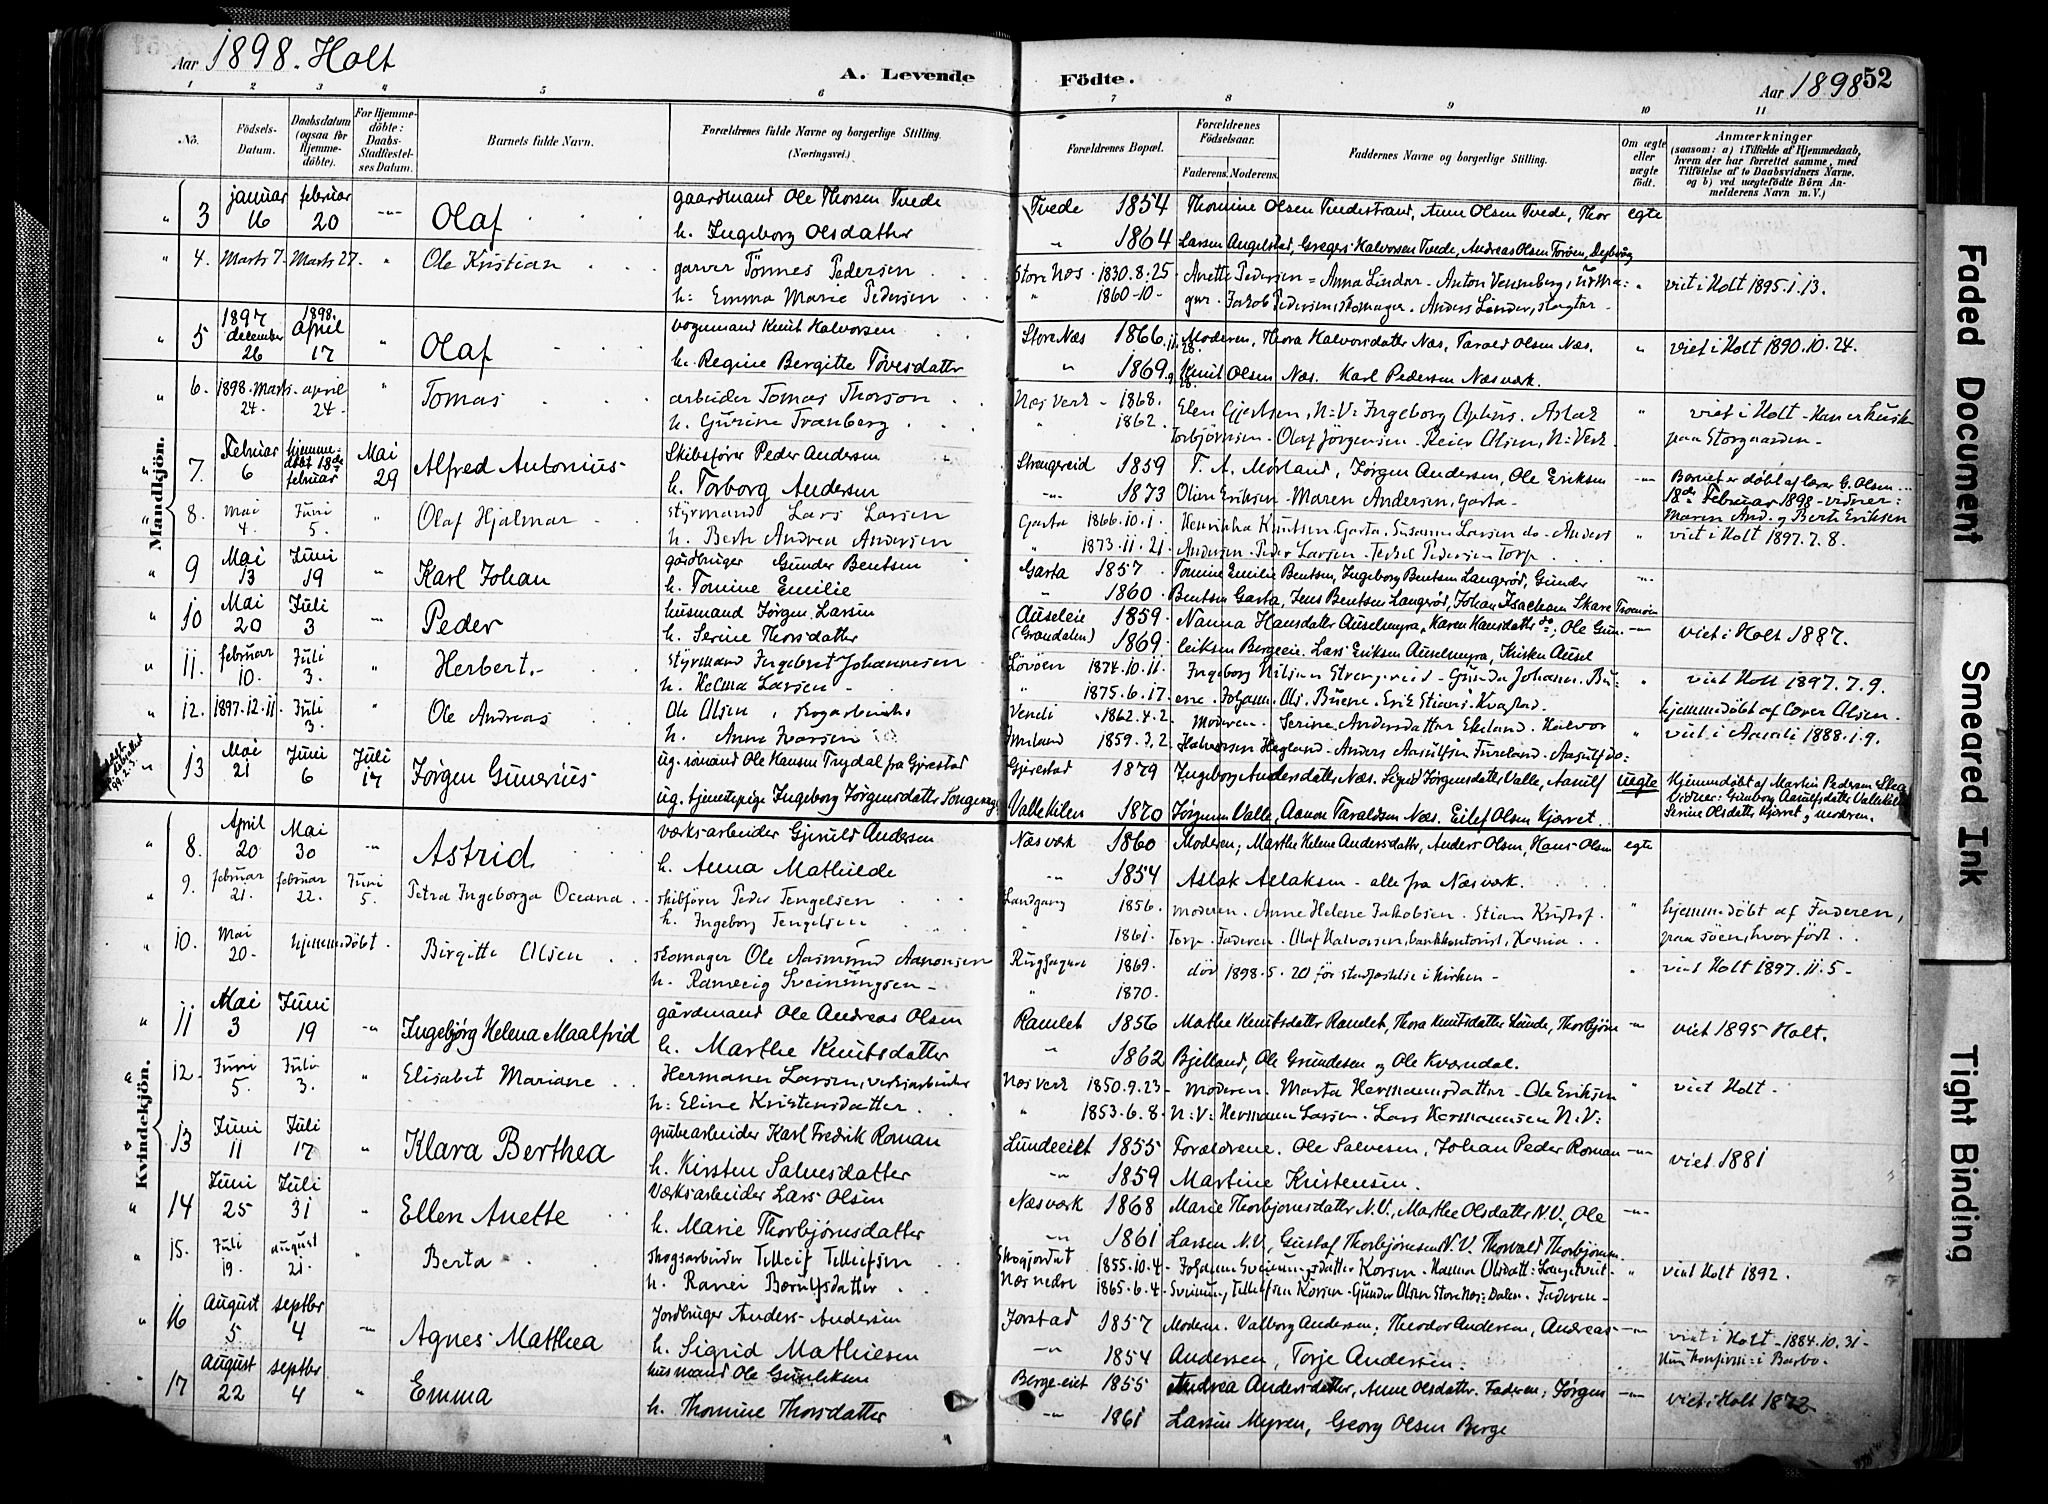 Aar 1898. Holt
A. Levende Födte.
Aar 1898 52
1 2 3 4 5 6 7 8 9 10 11
No.
Födsels-Datum.
Daabsdatum (ogsaa for Hjemme-döbte).
For Hjemme-döbte: Daabs-Stadfæstel-ses Datum.
Barnets fulde Navn.
Forældrenes fulde Navne og borgerlige Stilling. (Næringsvei.)
Forældrenes Bopæl.
Forældrenes Födselsaar.
Faderens. Moderens.
Faddernes Navne og borgerlige Stilling.
Om ægte eller uægte födt.
Anmærkninger
(saasom: a) i Tilfælde af Hjemmedaab,
hvem der har forrettet samme, med
Tilföielse af to Daabsvidners Navne.
og b) ved uægtefödte Börn An-
melderens Navn m.V.)
Mandkjön.
3 januar 16 februar 20 Olaf gaardmand Ole Thorsen Tvede Tvede 1854 Thomine Olsen Tvedestrand, Anne Olsen Tvede, Thor egte
h. Ingeborg Olsdatter " 1864 Larsen Angelstad, Gregers Halvorsen Tvede, Andreas Olsen
4. Marts 7. Marts 27 " Ole Kristian garver Tönnes Pedersen Store Næs 1830.8.25 Anette Pedersen = Anna Lindar - Anton Venneberg " viet i Holt 1895.1.13.
h: Emma Marie Pedersen " 1860-10- Jakob Pedersen, skomager. Anders Linder, slagter
5 1897 december 26 1898. April 17 " Olaf vognmand Knut Halvorsen Store Næs 1866 Moderen, Thora Halvorsdatter Næs, Tarald Olsen Næs. " viet i Holt 1890.10.24.
h. Regine Bergitte Tovesdatter " 1869 Knut Olsen Næs. Karl Pedersen Næsværk.
6. 1898. Marts 24. april 24. " Tomas arbeider Tomas Thorson Næs Verk - 1868. Elen Gjertsen, N:V: Ingeborg " viet i Holt -
h. Gurine Tranberg " 1862. Torbjörnsen - Olaf Jörgensen - Reier Olsen, N: Verk. paa Storgaarden -
7. Februar 6 hjemme-döbt 18de februar Mai 29 Alfred Antonius Skibsförer Peder Andersen Strengereid 1859 T. A. Morland, Jørgen Andersen, Ole Eriksen Barnet er döbt af lærer G. Olsen
h. Torborg Andersen 1873 Olien Eriksen - Maren Andersen, Garta - 18de Februar 1898 - vidner:
Maren And. og Berte Eriksen
8. Mai 4. Juni 5. " Olaf Hjalmar styrmand Lars Larsen Garta 1866.10.1. Henrikka Knutsen Garta, Susanne Larsen do - Anders " viet i Holt 1897.7.8.
h. Berte Andrea Andersen " 1873.11.21 Andersen. Peder Larsen - Pedersen Torp
9 Mai 13 Juni 19 Karl Johan gårdbruger Gunder Bentsen Garta 1857 Tomine Emilie Bentsen, Ingeborg Bentsen Langeröd, Gunder
h. Tomine Emilie " 1860 Bentsen Garta, Jens Bentsen Langeröd, Johan Isachsen Skare Tromöen
10 Mai 20 Juli 3 Peder husmand Jørgen Larsen Auseleie 1859 Nanna Hansdatter Auselmyra, Karen Hansdatter do, Ole Gun- viet i Holt 1887.
h. Serine Thorsdatter (Grandalen) 1869 leiksen Bergeeie. Lars Eriksen Auselmyra, Kristen Ausel
11. februar 10. Juli 3. " Herbert. styrmand Ingebret Johannesen Lövöen 1874.10.11. Ingeborg Nilsen Strengereid - Gunda Johann. Bu- " viet Holt 1897.7.9.
h. Helma Larsen " 1875.6.17 ene. Johann. Ols. Buene.
12. 1897.12.11 Juli 3. " Ole Andreas Ole Olsen, Vendi 1862.4.2. Moderen. Serine Andersdatter Ekeland. Halvor hjemmedöbt af Lærer Olsen.
h. Anne Ivarsen 1859.3.2. Halvorsen Hegland - Anders Aasulfsen " viet i 1888.1.9.
13 Mai 21 Juni 6 Juli 17 Jørgen Gunerius ug. sömand Ole Hansen Trydal fra Gjerestad Gjerestad 1879 Ingeborg Andersdatter Næs. Sigrid Jørgensdatter Valle, uegte Hjemmedöbt af Martin Pedersen
ug. tjenestepige Ingeborg Jørgensdatter Vallekilen 1870 Jørgensen Valle, Aanon Taraldsen Næs. Eilef Olsen Kjørret. Vidner: Gunborg Aanulfsdatter
Serine Olsdatter Kjørret, moderen.
Kvindekjön.
8. April 20 Mai 30 Astrid værksarbeider Gjeruld Andersen Næsværk 1860 Moderen; Marthe Helene Andersdatter, Anders Olsen, Hans Olsen egte
h. Anna Mathilde 1854 Aslak Aslaksen - alle fra Næsværk.
9. februar 21. februar 22. Juni 5. Petra Ingeborga Oceana skibförer Peder Tengelsen Landgang 1856. Moderen. Anne Helene Jakobsen. Stian Kristof. " hjemmedöbt af Faderen,
h. Ingeborg Tengelsen 1861. Torp. Faderen. Olaf Halvorsen, bankkontorist, paa söen, hvor födt.
10. Mai 20. hjemmedöbt. Birgitte Olsen skomager Ole Aasmund Aanonsen 1869. död 1898.5.20 för stadfæstelse i kirken - " viet Holt 1897.11.5 -
h. Ramveig Sveinungsen - " 1870.
11 Mai 3 Juni 19 Ingebjørg Helena Maalfrid gårdmand Ole Andreas Olsen Ramlet 1856 Mathe Knutsdatter Ramlet, Thora Knutsdatter Lunde, Thorbjørn viet 1895 Holt.
h. Marthe Knutsdatter 1862 Bjelland, Ole Grundesen og Ole Kværndal.
12. Juni 5. Juli 3. " Elisabet Mariane Hermann Larsen, verksarbeider Næs Verk 1850.9.23 - Moderen. Marta Hermannsdatter - Ole Eriksen " viet Holt -
h: Eline Kristensdatter " 1853.6.8. N:V: Hermann Larsen. Lars Hermannsen N:V:
13 Juni 11 Juli 17 " Klara Berthea grubearbeider Karl Fredrik Roman Lundeeiet 1855 Forældrene. Ole Salvesen, Johan Peder Roman viet 1881
h. Kirsten Salvesdatter 1859 Martine Kristensen.
14 Juni 25 Juli 31 " Ellen Anette Værksarbeider Lars Olsen Næsværk 1868 Marie Thorbjørnsdatter N.V., Marthe Olsdatter N.V., Ole
h. Marie Thorbjørnsdatter 1861 Larsen N.V., Gustaf Thorbjørnsen N.V. Thorvald Thorbjørnsen
15. Juli 19. august 21. " Berta skogsarbeider Tellef Tellefsen 1855.10.4 - Johanne Sveinungsdatter Korsen - Hanna Olsdatt: " viet Holt 1892.
h. Ranei Berulfsdatter Næs nedre 1865.6.4 - Sveinung Tellefsen Korsen - Gunder Olsen Store Næs: Dalen - Faderen -
16 August 5 septbr 4 Agnes Matthea Jordbruger Anders Andersen Jorstad 1857 Moderen. Valborg Andersen; Theodor Andersen, Andreas viet i Holt - 1884.10.31 -
h. Sigrid Mathiesen 1854 Andersen, Torje Andersen. Hun konfirm: i Barbo.
17 August 22 septbr 4 " Emma husmand Ole Gunleksen Berge-eiet 1855 Andrea Andersdatter, Anne Olsdatter. Faderen; Jørgen viet i Holt 1872
h. Thomine Thorsdatter 1861 Larsen Myren, Georg Olsen Berge
Faded Document
Smeared Ink
Tight Binding